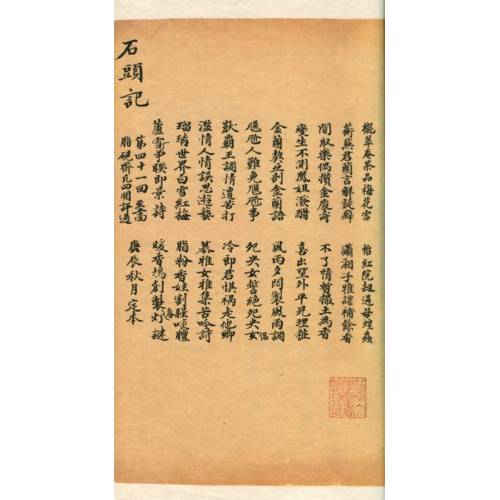 櫳翠庵茶品梅花雪 怡紅院刼遇母蝗蟲
蘅蕪君蘭言解疑癖 瀟湘子雅謔補餘香
閒取樂偶攢金慶壽 不了情暫撮土為香
變生不測鳳姐潑醋 喜出望外平兒理粧
金蘭契互剖金蘭語 風雨夕悶製風雨詞
尷尬人難免尷尬事 夗央女誓絕夗央女侶
獃霸王調情遭苦打 冷郎君懼禍走他鄉
濫情人情誤思遊藝 慕雅女雅集苦吟詩
琉璃世界白雪紅梅 脂粉香娃割腥啖膻
蘆雪爭聯即景詩 暖香塢創製灯謎
第四十一回至五十回
脂硯齋凡四閱評過 庚辰秋月定本
石頭記